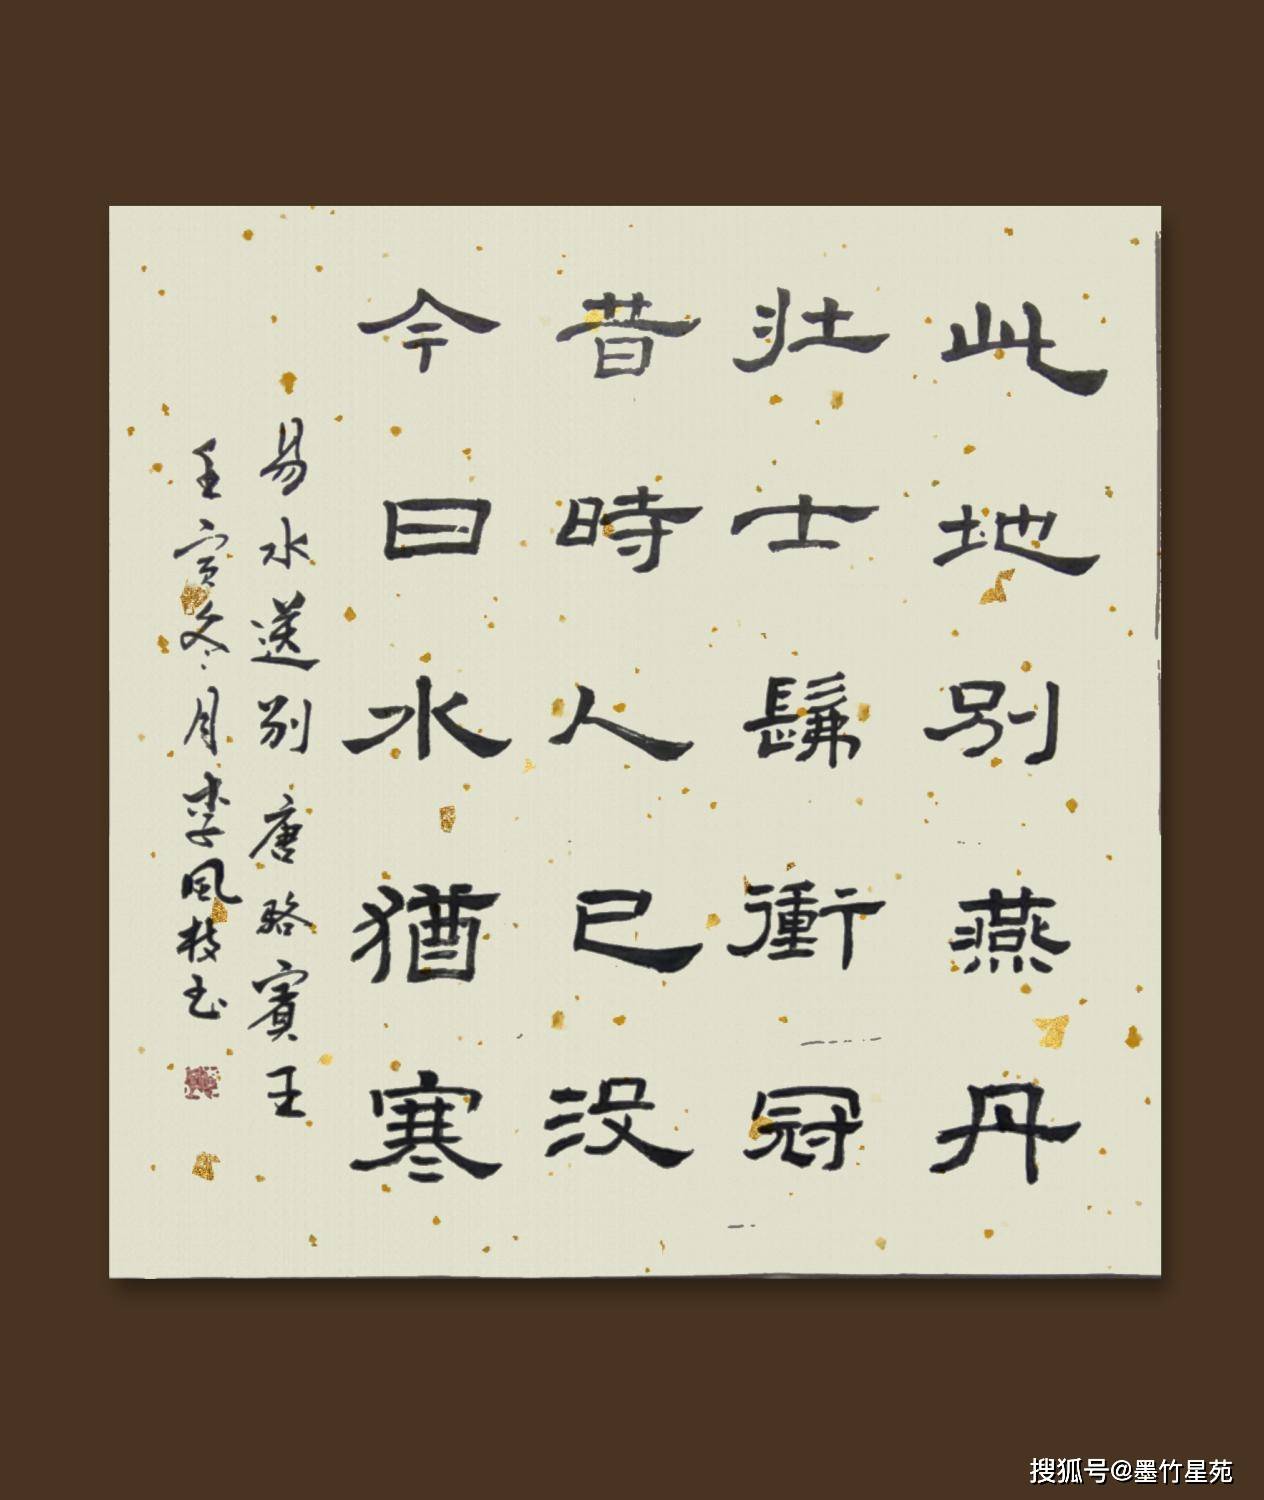 此地别燕丹
壯士髴衝冠
昔時人已没
今日水猶寒
易水送别 唐骆賓王
壬寅冬月李風枝书
搜狐号@墨竹星苑